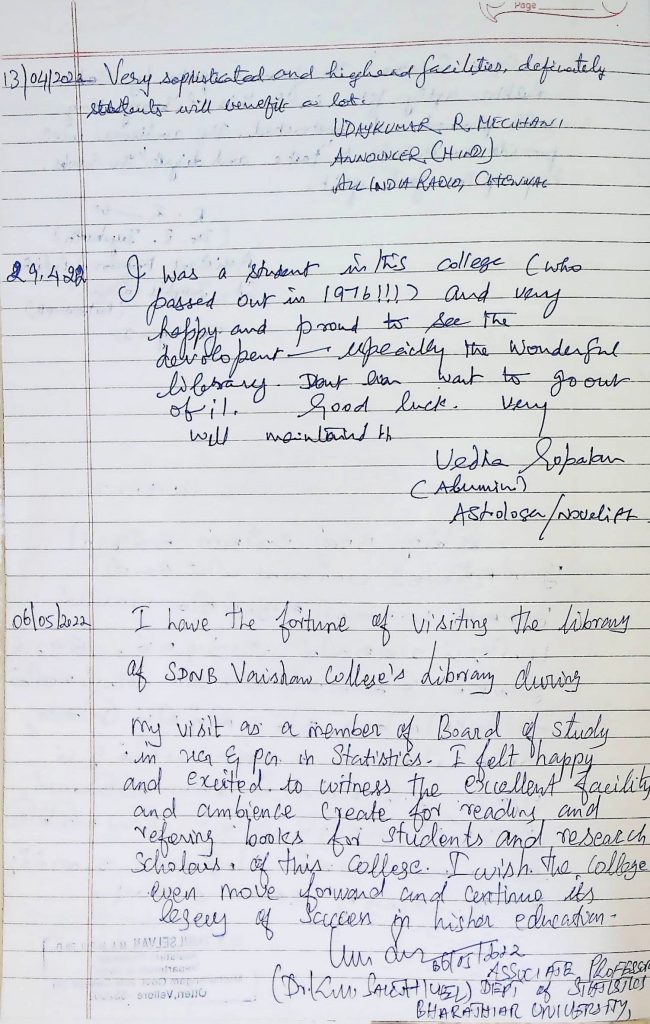 Page
13/04/2022 Very sophisticated and highend facilities, definately
students will benefit a lot.
UDAYKUMAR R. MECHHANI
ANNOUNCER (HINDI)
ALL INDIA RADIO, CHENNAI
29.4.22 I was a student in this college (who
passed out in 1976!!!) and very
happy and proud to see the
development — especially the wonderful
library. Dont even want to go out
of it. Good luck. Very
well maintaind
Vedha Gopalan
(Alumini)
Astrologer/Novelist
06/05/2022 I have the fortune of visiting the library
of SDNB Vaishnav College's Library during
my visit as a member of Board of study
in UG & PG in Statistics. I felt happy
and excited to witness the excellent facility
and ambience create for reading and
refering books for students and research
scholars of this college. I wish the college
even move forward and continue its
legesy of success in higher education.
06/05/2022
ASSOCIATE PROFESSOR
(Dr. K.M. SAKTHIVEL) DEPT of STATISTICS
BHARATHIAR UNIVERSITY,